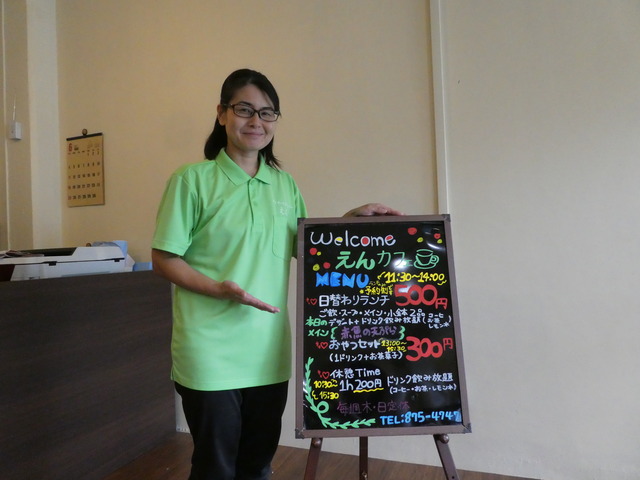 Welcome
えんカフェ
MENU 11:30~14:00
予約制
日替わりランチ 500円
ご飯・スープ・メイン・小鉢2品
デザート+ドリンク飲み放題(コーヒー お茶 レモン水)
本日のメイン {煮魚の天がい}
おやつセット 13:00~15:30 300円
(1ドリンク+お茶菓子)
休憩Time
10:30~15:30 1h200円 ドリンク飲み放題
(コーヒー・お茶・レモン水)
毎週木・日定休
TEL:875-4747